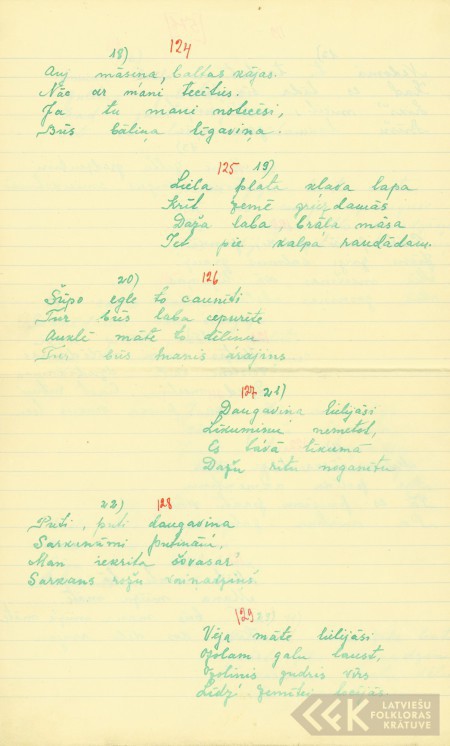 18) 124
Auj māsiņa, baltas kājas.
Nāc ar mani tecēties.
Ja tu mani notecēsi,
Būs bāliņa līgaviņa.
125 19)
Liela plata kļava lapa
Krīt zemē griezdamās
Daža laba, brāļa māsa
Iet pie kalpa raudādam.
20) 126
Šūpo egle to caunīti
Tur būs laba cepurīte
Auklē māte to dēliņu
Tur būs manis arājiņs
127 21)
Daugaviņa lielījāsi
Līkumiņu nemetot,
Es tāvā līkumā
Dažu rītu noganītu
22) 128
Puti, puti daugaviņa
Sarkanām putiņām,
Man iekrita šovasar
Sarkans rožu vainadziņš
129
Vēja māte lielījāsi
Ozolam galu lauzt,
Ozoliņis gudris vīrs
Līdz zemītei
LATVIEŠU
FOLKLORAS
KRĀTUVE